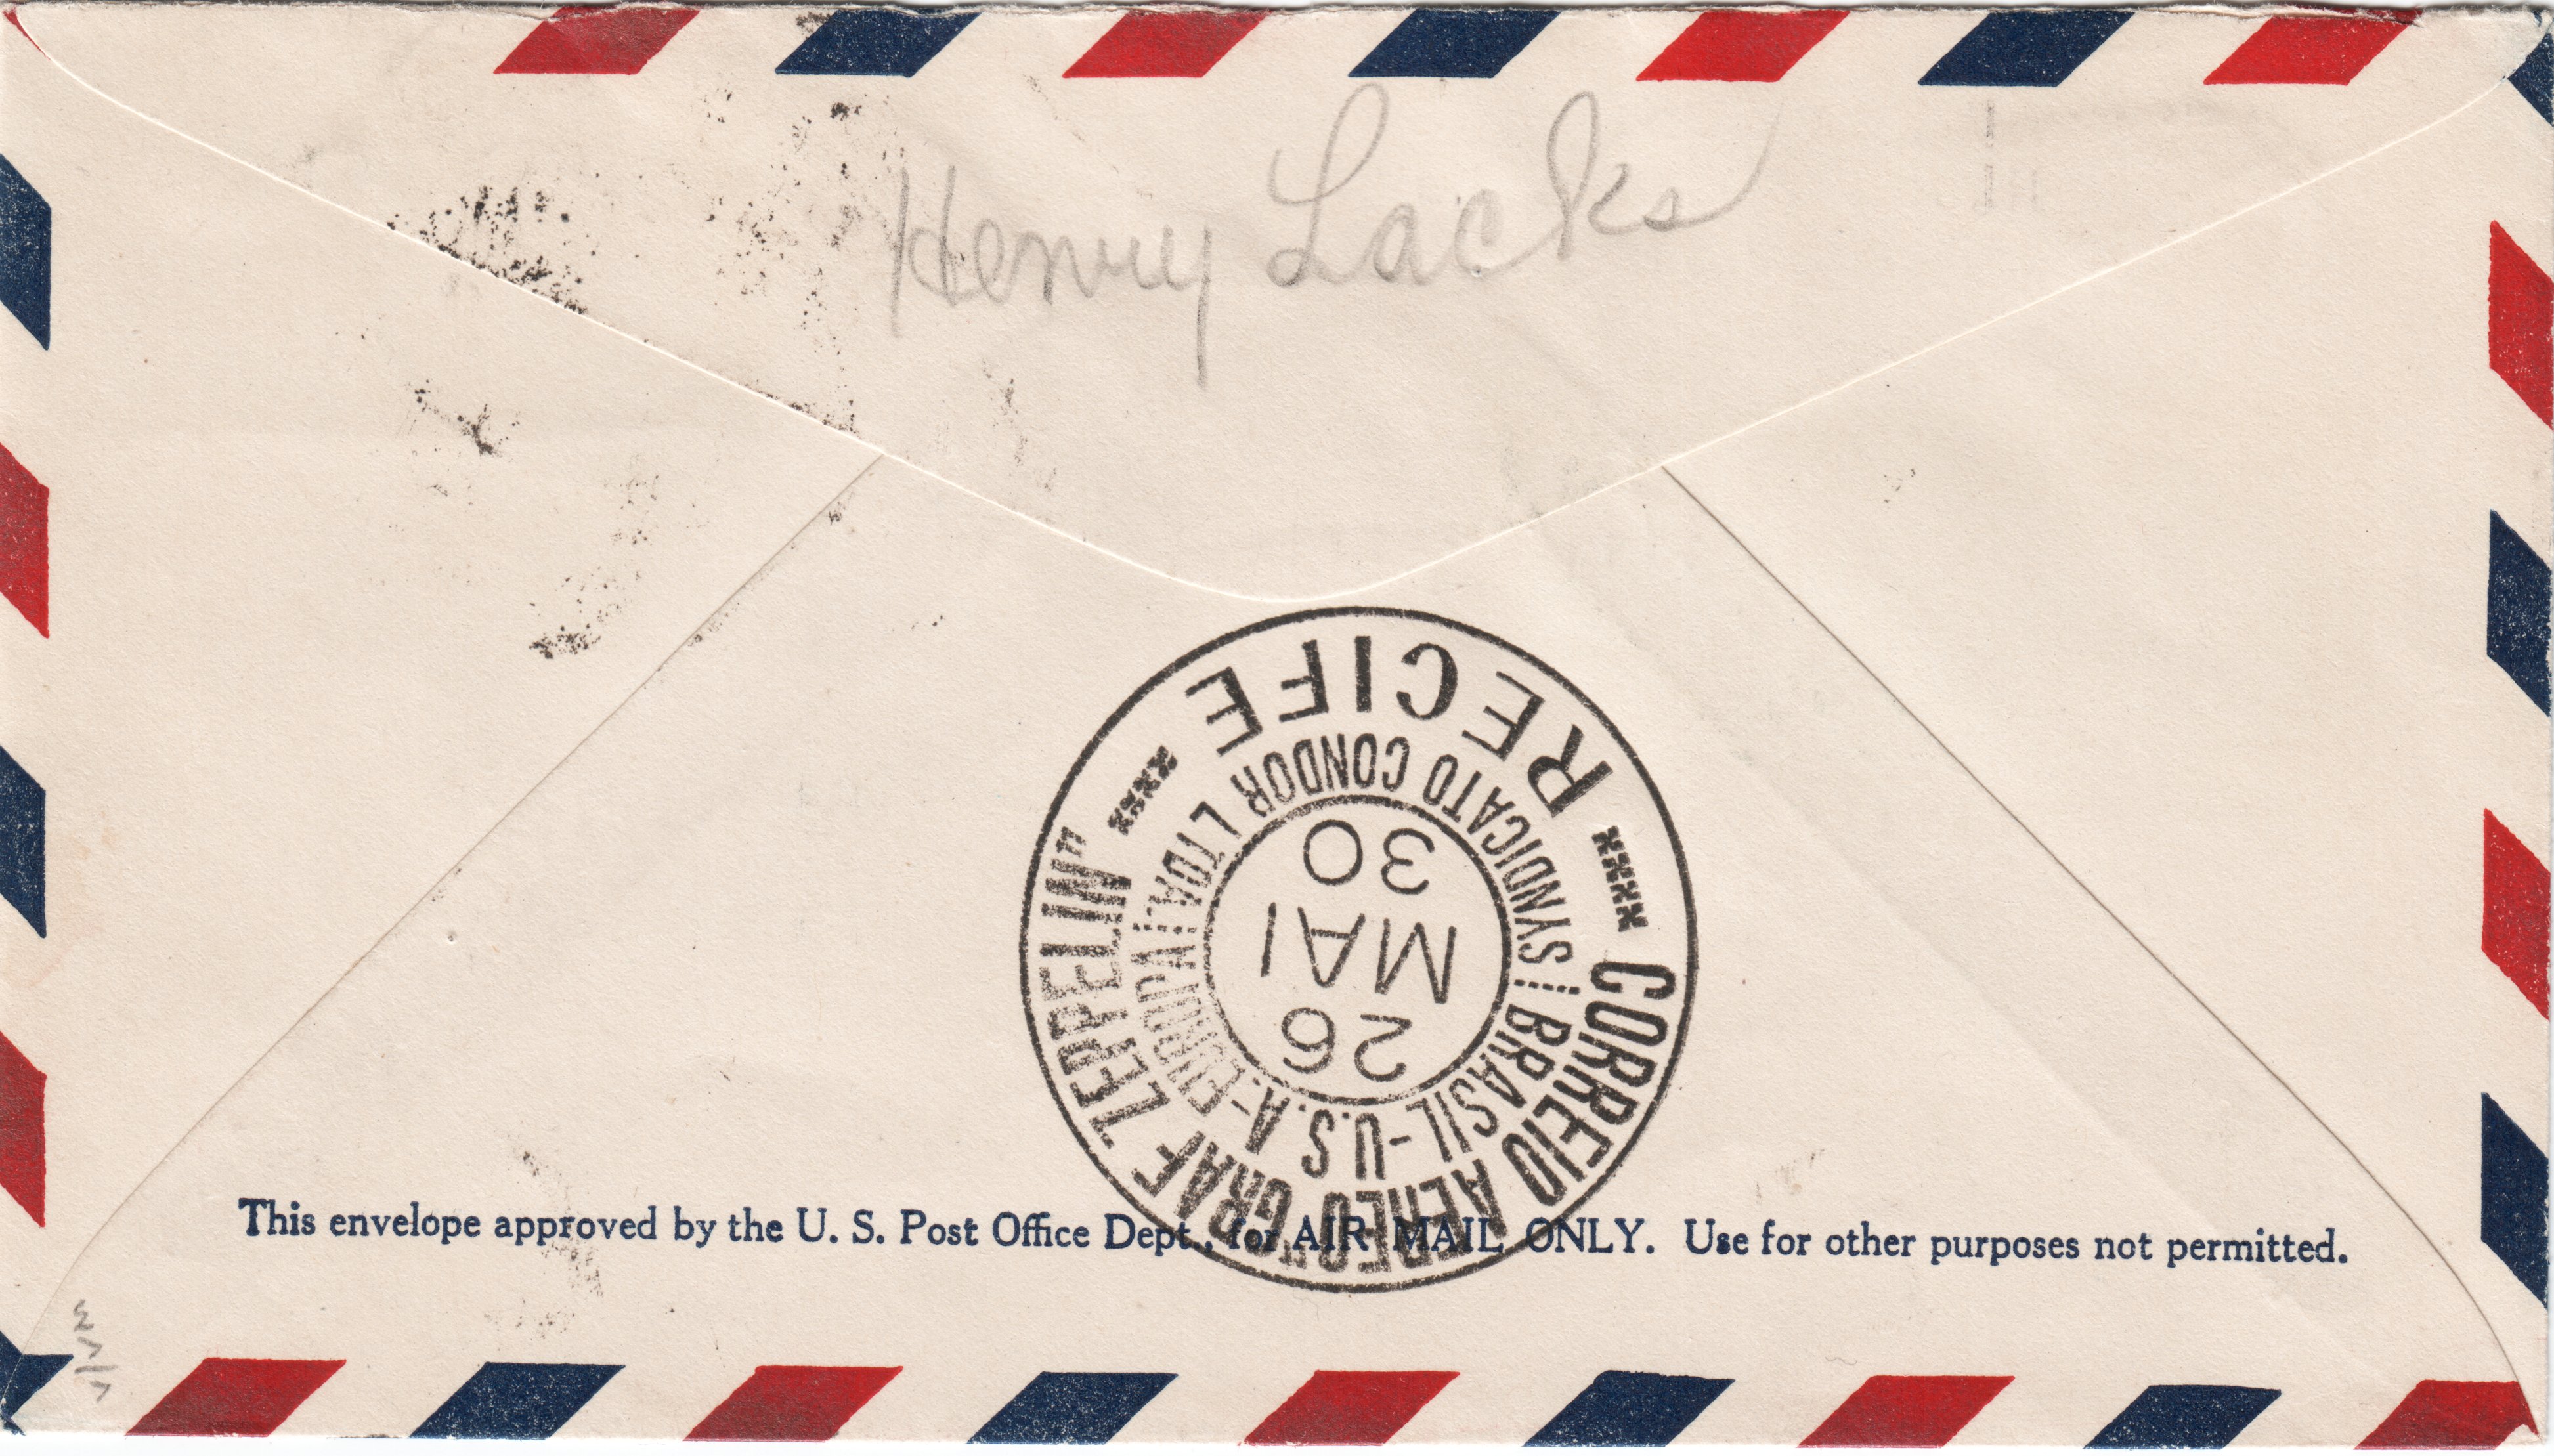 Henry Lacks
RECIFE
SYNDICATO CONDOR LTDA.
30
MAI
26
BRASIL-U.S.A.-EUROPA
CORREIO AEREO "GRAF ZEPPELIN"
This envelope approved by the U. S. Post Office Dept., for AIR MAIL ONLY. Use for other purposes not permitted.